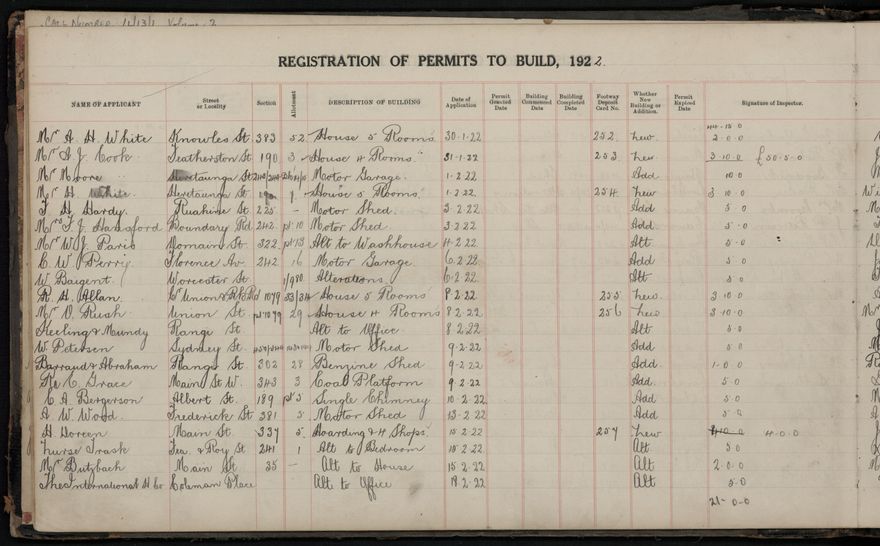 CALL NUMBER 1/13/1 Volume 2
REGISTRATION OF PERMITS TO BUILD, 1922.
NAME OF APPLICANT Street or Locality Section Allotment DESCRIPTION OF BUILDING Date of Application Permit Granted Date Building Commenced Date Building Completed Date Footway Deposit Card No. Whether New Building or Addition. Permit Expired Date Signature of Inspector.
Mr A. H. White Knowles St. 383 52 House 5 Rooms 30.1.22 252 New 2.0.0
Mr A J. Cook Featherston St 190 3 House 4 Rooms 31.1.22 253 New 3.10.0 £50.5.0
Mr Moore Heretaunga St Motor Garage 1.2.22 Add 10.0
Mr H. White Heretaunga St. House 5 Rooms 1.2.22 254 New 3.10.0
F. H. Hardy Ruahine St 225 - Motor Shed 3.2.22 Add 5.0
Mrs F. J. Hansford Boundary Rd 242 pt 10 Motor Shed 3.2.22 Add 5.0
Mr W J. Paris St. 322 pt 13 Alt to Washhouse 4.2.22 Alt 5.0
C. W. Perry Florence Av 242 16 Motor Garage 6.2.22 Add 5.0
W. Baigent Worcester St. 1/980 Alterations 6.2.22 Alt 5.0
R. H. Allan. Union & Rd 1079 33/34 House 5 Rooms 8.2.22 255 New 3.10.0
Mr O. Rush Union St. pt 1079 29 House 4 Rooms 8.2.22 256 New 3.10.0
Keeling & Mundy Range St. Alt to Office 8.2.22 Alt 5.0
W. Petersen Sydney St. Motor Shed 9.2.22 Add 5.0
Barraud & Abraham Range St. 302 28 Benzine Shed 9.2.22 Add. 1.0.0
C. Grace Main St W. 343 3 Coal Platform 9.2.22 Add. 5.0
C A. Bergerson Albert St. 189 pt 3 Single Chimney 10.2.22 Add 5.0
A W. Wood. Frederick St 381 5 Motor Shed 13.2.22 Add 5.0
H. Main St. 337 5 Hoarding & 4 Shops 15.2.22 257 New 4.0.0
Nurse Trask Fea. & Roy St 241 1 Alt to Bedroom 15.2.22 Alt. 5.0
Mr Butzbach Main St 35 - Alt to House 15.2.22 Alt 2.0.0
The International H Co Coleman Place Alt to Office 18.2.22 Alt 5.0
21-0-0